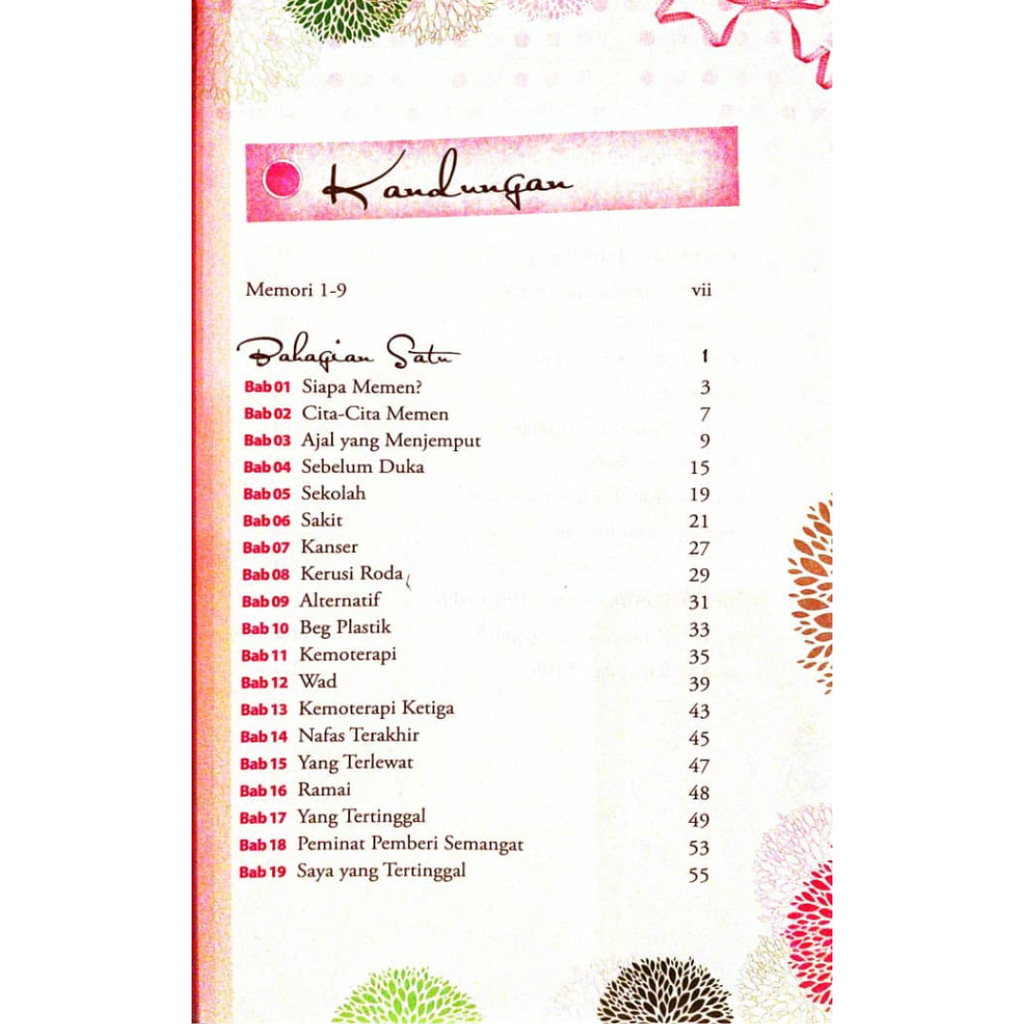 Kandungan
Memori 1-9 vii
Bahagian Satu 1
Bab 01 Siapa Memen? 3
Bab 02 Cita-Cita Memen 7
Bab 03 Ajal yang Menjemput 9
Bab 04 Sebelum Duka 15
Bab 05 Sekolah 19
Bab 06 Sakit 21
Bab 07 Kanser 27
Bab 08 Kerusi Roda 29
Bab 09 Alternatif 31
Bab 10 Beg Plastik 33
Bab 11 Kemoterapi 35
Bab 12 Wad 39
Bab 13 Kemoterapi Ketiga 43
Bab 14 Nafas Terakhir 45
Bab 15 Yang Terlewat 47
Bab 16 Ramai 48
Bab 17 Yang Tertinggal 49
Bab 18 Peminat Pemberi Semangat 53
Bab 19 Saya yang Tertinggal 55